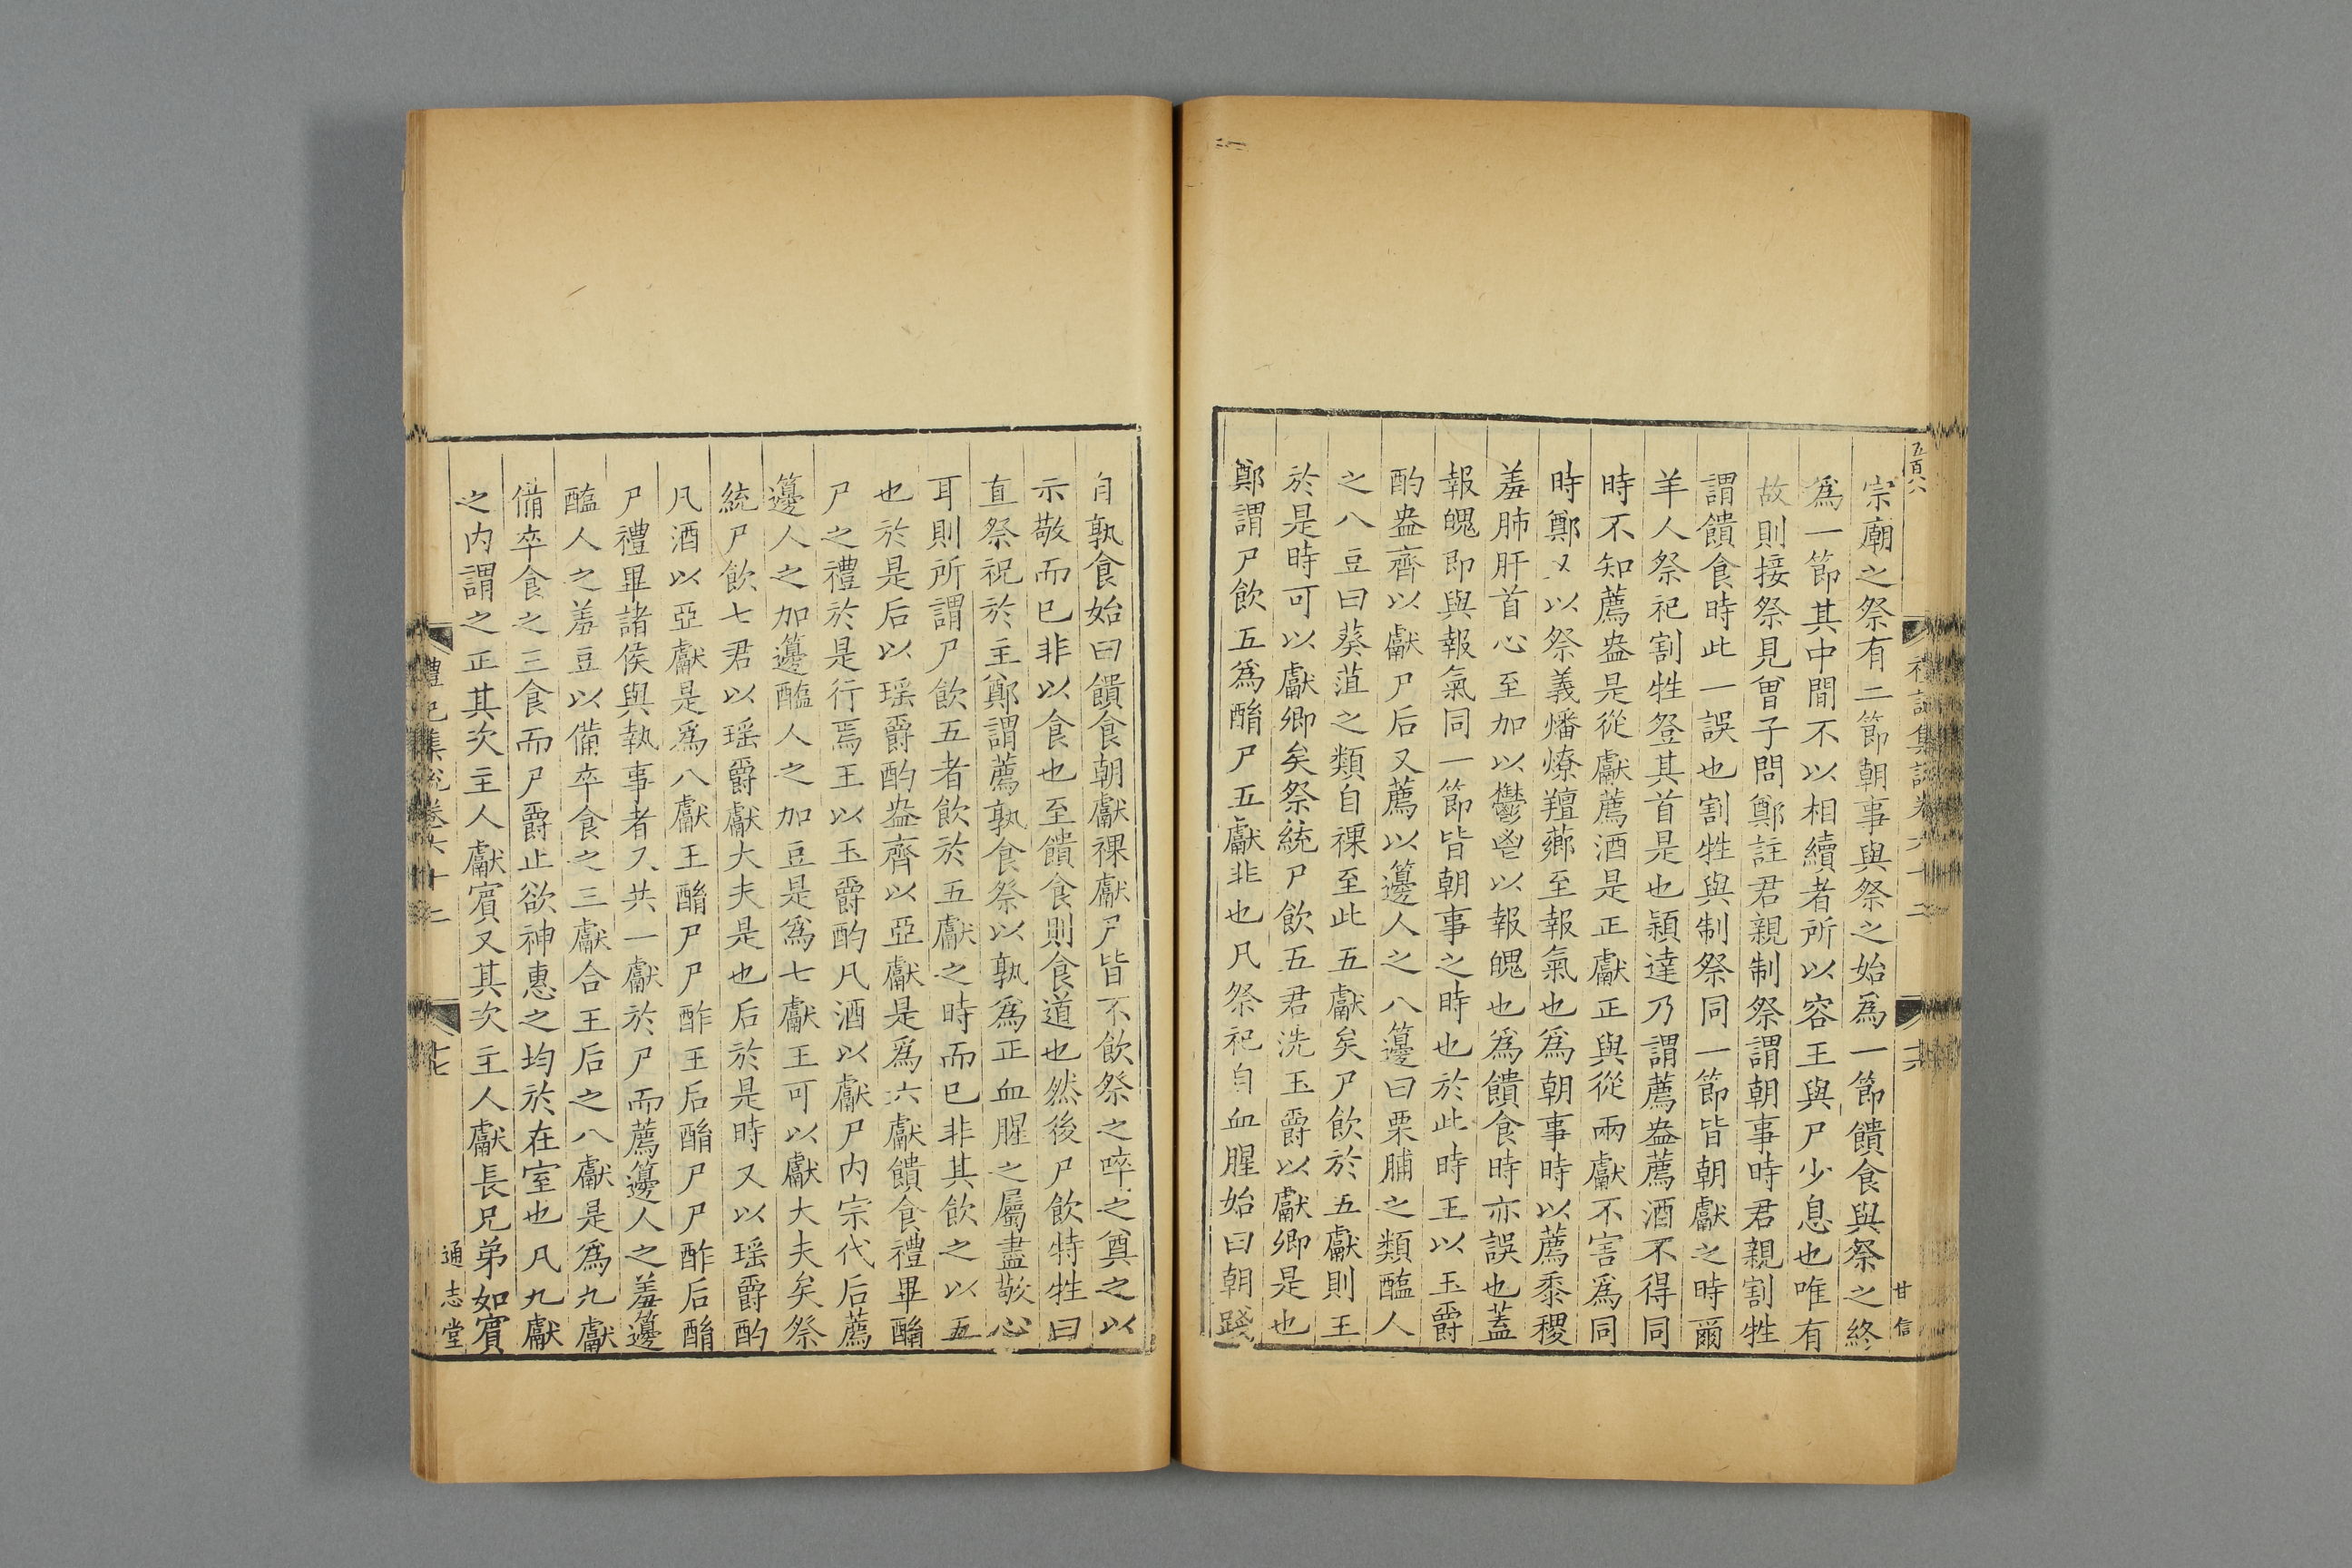 五百八八
禮記集說卷六十二
十六
甘信
宗廟之祭有二節朝事與祭之始為一節饋食與祭之終
為一節其中間不以相續者所以容王與尸少息也唯有
故則接祭見曾子問鄭註君親制祭謂朝事時君親割牲
謂饋食時此一誤也割牲與制祭同一節皆朝獻之時爾
羊人祭祀割牲登其首是也穎達乃謂薦盎薦酒不得同
時不知薦盎是從獻薦酒是正獻正與從兩獻不害為同
時鄭又以祭義燔燎羶薌至報氣也為朝事時以薦黍稷
羞肺肝首心至加以鬱鬯以報魄也為饋食時亦誤也蓋
報魄即與報氣同一節皆朝事之時也於此時王以玉爵
酌盎齊以獻尸后又薦以籩人之八籩曰栗脯之類醢人
之八豆曰葵菹之類自祼至此五獻矣尸飲於五獻則王
於是時可以獻卿矣祭統尸飲五君洗玉爵以獻卿是也
鄭謂尸飲五為酳尸五獻非也凡祭祀自血腥始曰朝踐
自孰食始曰饋食朝獻祼獻尸皆不飲祭之啐之奠之以
示敬而已非以食也至饋食則食道也然後尸飲特牲曰
直祭祝於主鄭謂薦孰食祭以孰為正血腥之屬盡敬心
耳則所謂尸飲五者飲於五獻之時而已非其飲之以五
也於是后以瑶爵酌盎齊以亞獻是為六獻饋食禮畢酳
尸之禮於是行焉王以玉爵酌凡酒以獻尸内宗代后薦
籩人之加籩醢人之加豆是為七獻王可以獻大夫矣祭
統尸飲七君以瑶爵獻大夫是也后於是時又以瑶爵酌
凡酒以亞獻是為八獻王酳尸尸酢王后酳尸尸酢后酳
尸禮畢諸侯與執事者又共一獻於尸而薦籩人之羞籩
醢人之羞豆以備卒食之三獻合王后之八獻是為九獻
備卒食之三食而尸爵止欲神惠之均於在室也凡九獻
之内謂之正其次主人獻賓又其次主人獻長兄弟如賓
禮記集說卷六十二
十七
通志堂